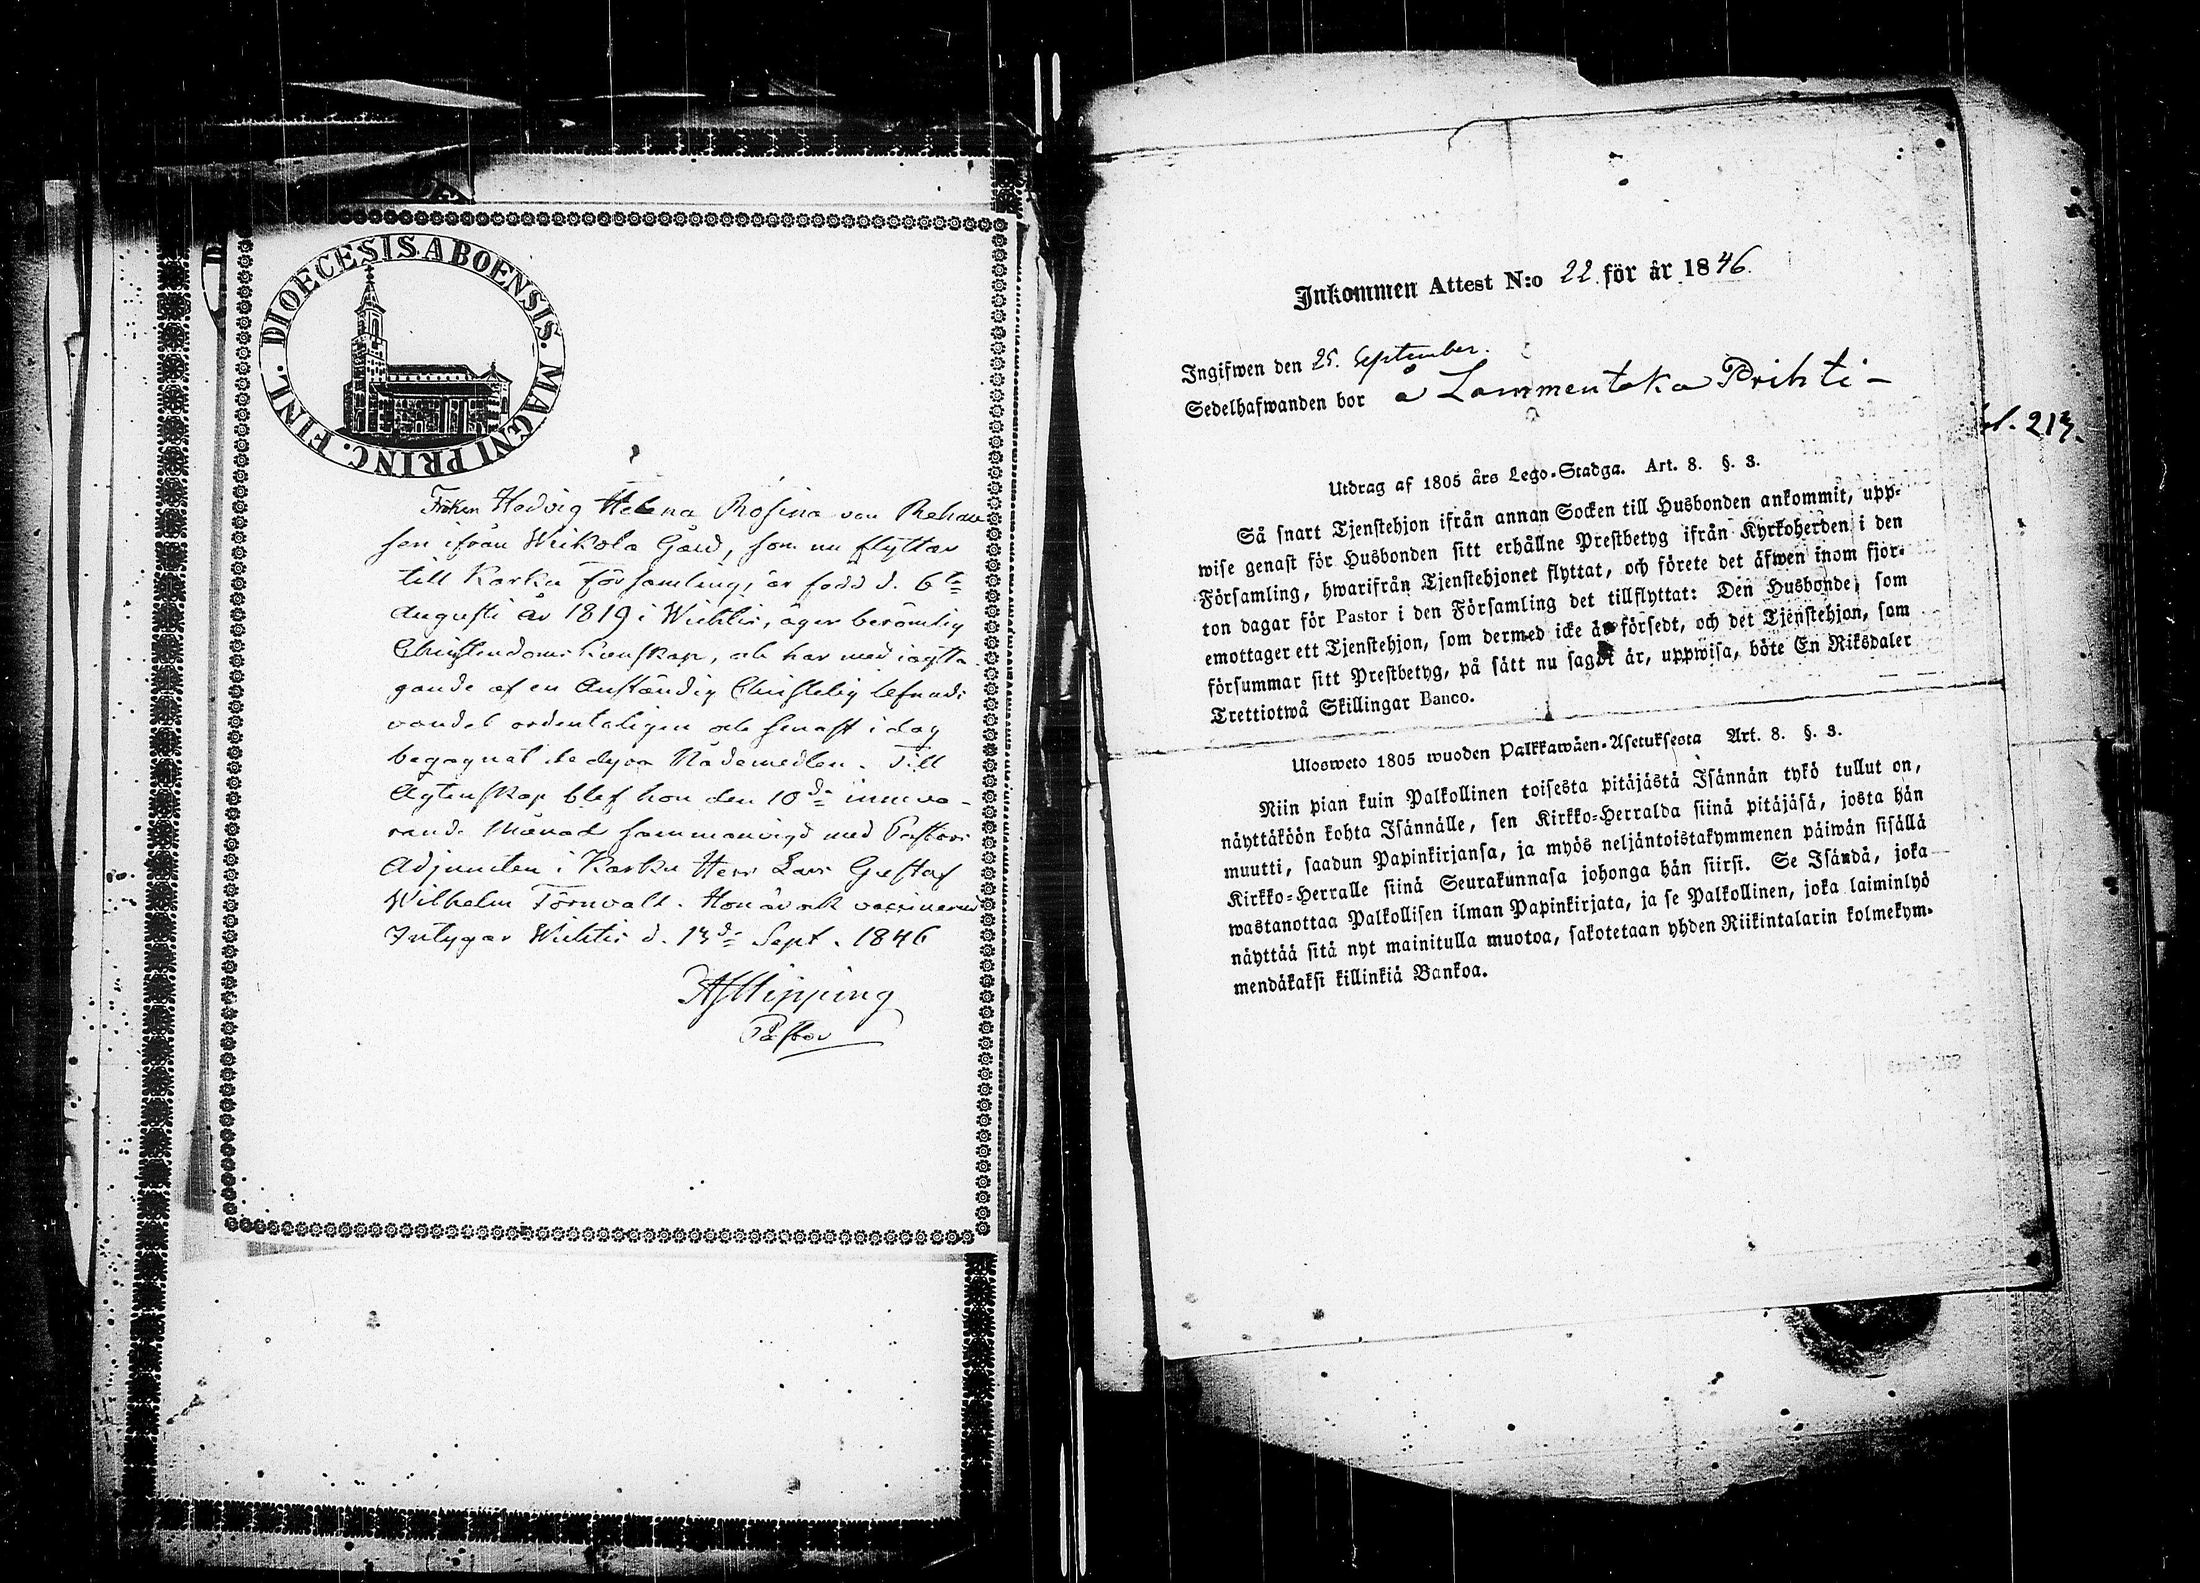 DIOECESIS ABOENSIS. MAGNI PRINC. FINL.
Fröken Hedvig Helena Rosina von Rehau
sen ifrån Wirkola Gård, som nu flyttar
till Karku Församling, är född d. 6te
Augusti år 1819 i Wichtis, äger berömlig
Christendoms kunskap, och har med iagtta
gande af en anständig Christelig lefnads
vandel ordenteligen och senast i dag
begagnat de dyra Nådemedlen. Till
Agtenskap blef hon den 10de innewa-
rande Månad sammanvigd med Pastors
Adjuncten i Karku Herr Lars Gustaf
Wilhelm Törnvall. Hon är ock vaccinerad
Intygar Wichtis d. 13de Sept. 1846
Pastor
Inkommen Attest N:o 22 för år 1846.
Ingifwen den 25. September.
Sedelhafwanden bor å Lammentaka Prihti -
213.
Utdrag af 1805 års Lego-Stadga. Art. 8. §. 3.
Så snart Tjenstehjon ifrån annan Socken till Husbonden ankommit, upp-
wise genast för Husbonden sitt erhållne Prestbetyg ifrån Kyrkoherden i den
Församling, hwarifrån Tjenstehjonet flyttat, och förete det äfwen inom fjor-
ton dagar för Pastor i den Församling det tillflyttat: Den Husbonde, som
emottager ett Tjenstehjon, som dermed icke är försedt, och det Tjenstehjon, som
försummar sitt Prestbetyg, på sätt nu sagdt är, uppwisa, böte En Riksdaler
Trettiotwå Skillingar Banco.
Ulosweto 1805 wuoden Palkkawäen-Asetuksesta Art. 8. §. 3.
Niin pian kuin Palkollinen toisesta pitäjästä Isännän tykö tullut on,
näyttäköön kohta Isännälle, sen Kirkko-Herralda siinä pitäjäsä, josta hän
muutti, saadun Papinkirjansa, ja myös neljäntoistakymmenen päiwän sisällä
Kirkko-Herralle siinä Seurakunnasa johonga hän siirsi. Se Isändä, joka
wastanottaa Palkollisen ilman Papinkirjata, ja se Palkollinen, joka laiminlyö
näyttää sitä nyt mainitulla muotoa, sakotetaan yhden Riikintalarin kolmekym-
mendäkaksi killinkiä Bankoa.